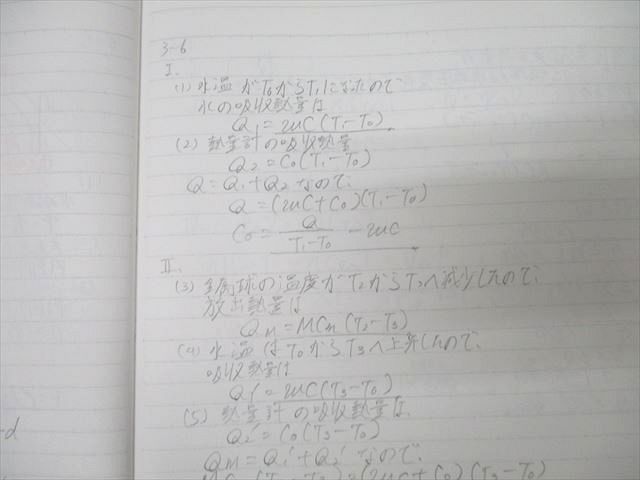 3-6
I.
(1) 水温がT₀からT₁になったので
水の吸収熱量は
Q₁ = 2mC(T₁-T₀)
(2) 熱量計の吸収熱量
Q₂ = C₀(T₁-T₀)
Q = Q₁+Q₂ なので、
Q = (2mC+C₀)(T₁-T₀)
C₀ = Q/(T₁-T₀) - 2mC
II.
(3) 金属球の温度がT₂からT₃へ減少したので、
放出熱量は
Qm = MCm(T₂-T₃)
(4) 水温はT₀からT₃へ上昇したので、
吸収熱量は
Q₁' = 2mC(T₃-T₀)
(5) 熱量計の吸収熱量は、
Q₂' = C₀(T₃-T₀)
Qm = Q₁'+Q₂' なので、
MCm(T₂-T₃) = (2mC+C₀)(T₃-T₀)
-d